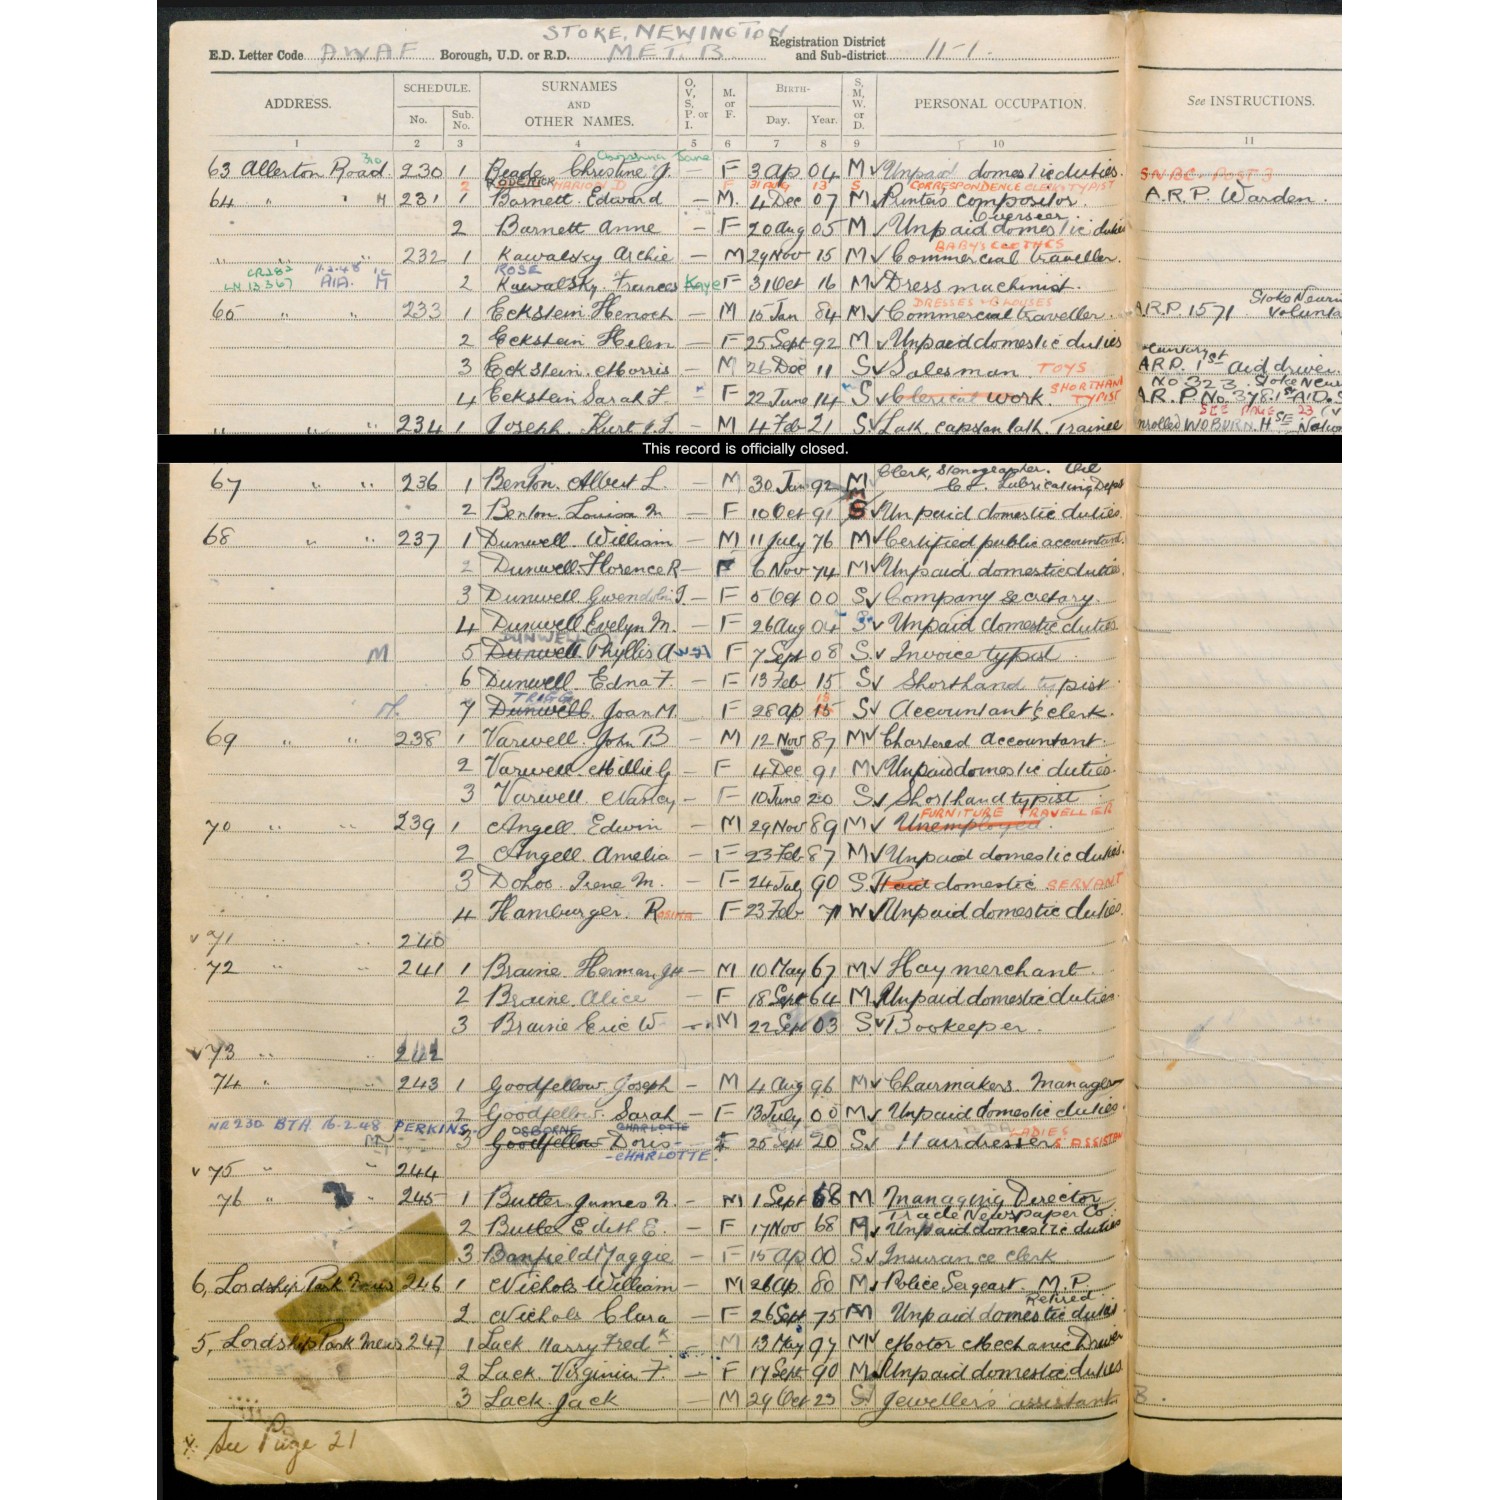 STOKE, NEWINGTON
E.D. Letter Code AWAF Borough, U.D. or R.D. MET. B. Registration District and Sub-district 11-1.
ADDRESS. SCHEDULE. No. Sub. No. SURNAMES AND OTHER NAMES. O, V, S, P. or I. M. or F. BIRTH- Day. Year. S, M, W. or D. PERSONAL OCCUPATION. See INSTRUCTIONS.
1 2 3 4 5 6 7 8 9 10 11
Christina Jane
63 Allerton Road 230 1 Beade Christine J. — F 3 Ap 04 M Unpaid domestic duties. SNBC. POST 3
2 RODERICK MARION D F 31 AUG 13 S CORRESPONDENCE CLERK TYPIST
64 " " M 231 1 Barnett Edward — M. 4 Dec 07 M Printers compositor. A.R.P. Warden.
Overseer
2 Barnett Anne — F 20 Aug 05 M Unpaid domestic duties
BABY'S CLOTHES
" " 232 1 Kawalsky Archie — M 29 Nov 15 M Commercial traveller.
CR283 11.2.48 ROSE
LN 13367 AIA. M 2 Kawalsky Frances Kaye F 31 Oct 16 M Dress machinist.
DRESSES & BLOUSES
65 " " 233 1 Eckstein Henoch — M 15 Jan 84 M Commercial traveller. A.R.P. 1571
2 Eckstein Helen — F 25 Sept 92 M Unpaid domestic duties
3 Eckstein Morris — M 26 Dec 11 S Salesman TOYS ARP. 1st aid driver.
No 323. Stoke New
4 Eckstein Sarah F. F 22 June 14 S Clerical work SHORTHAND TYPIST A.R.P No. 3781
SEE PAGE 23
" " 234 1 Joseph Kurt J. — M 4 Feb 21 S Lath. capstan lath. Trainee enrolled WOBURN. HSE
This record is officially closed.
Clerk, Stenographer. Oil
67 " " 236 1 Benton Albert L. — M 30 Jan 92 M Co. Lubricating Dept
2 Benton Louisa M — F 10 Oct 91 S M Unpaid domestic duties.
68 " " 237 1 Dunwell William — M 11 July 76 M Certified public accountant.
2 Dunwell Florence R — F 6 Nov 74 M Unpaid domestic duties.
3 Dunwell Gwendolin J. — F 5 Oct 00 S Company secretary.
4 Dunwell Evelyn M. — F 26 Aug 04 S Unpaid domestic duties
DUNWELL
M 5 Dunwell Phyllis A F 7 Sept 08 S. Invoice typist
6 Dunwell Edna F. — F 13 Feb 15 S Shorthand typist.
TRIGG 15
M. 7 Dunwell Joan M. F 28 Ap 15 S Accountant's clerk.
69 " " 238 1 Varwell John B — M 12 Nov 87 M Chartered accountant.
2 Varwell Millie G — F 4 Dec 91 M Unpaid domestic duties.
3 Varwell Nancy — F 10 June 20 S Shorthand typist
FURNITURE TRAVELLER
70 " " 239 1 Angell Edwin — M 29 Nov 89 M Unemployed.
2 Angell Amelia — F 23 Feb 87 M Unpaid domestic duties.
3 Dohoo Irene M. — F 24 July 90 S. Paid domestic SERVANT
4 Hamburger ROSINA F 23 Feb 71 W Unpaid domestic duties.
v 71 " " 240
72 " " 241 1 Braine Herman — M 10 May 67 M Hay merchant.
2 Braine Alice — F 18 Sept 64 M Unpaid domestic duties
3 Braine Eric W — M 22 Sept 03 S Bookeeper.
v 73 " " 242
74 " " 243 1 Goodfellow Joseph — M 4 Aug 96 M Chairmakers Manager
2 Goodfellow Sarah — F 13 July 00 M Unpaid domestic duties.
NR230 BTA 16-2.48 PERKINS OSBORNE CHARLOTTE LADIES
3 Goodfellow Doris — F 25 Sept 20 S Hairdresser'S ASSISTAN
CHARLOTTE.
v 75 " " 244
76 " " 245 1 Butler James N. — M 1 Sept 68 M Managing Director
Trade Newspaper Co.
2 Butler Edith E. — F 17 Nov 68 M Unpaid domestic duties
3 Banfield Maggie — F 15 Ap 00 S Insurance clerk
6, Lordship Park Mews 246 1 Nichols William — M 26 Ap. 80 M Police Sergeant M.P.
Retired
2 Nichols Clara — F 26 Sept 75 M Unpaid domestic duties
5, Lordship Park Mews 247 1 Lack Harry Fred K — M 13 May 97 M Motor Mechanic Driver
2 Lack Virginia F. — F 17 Sept 90 M Unpaid domestic duties
3 Lack Jack M 29 Oct 23 S Jewellers assistant
See Page 21